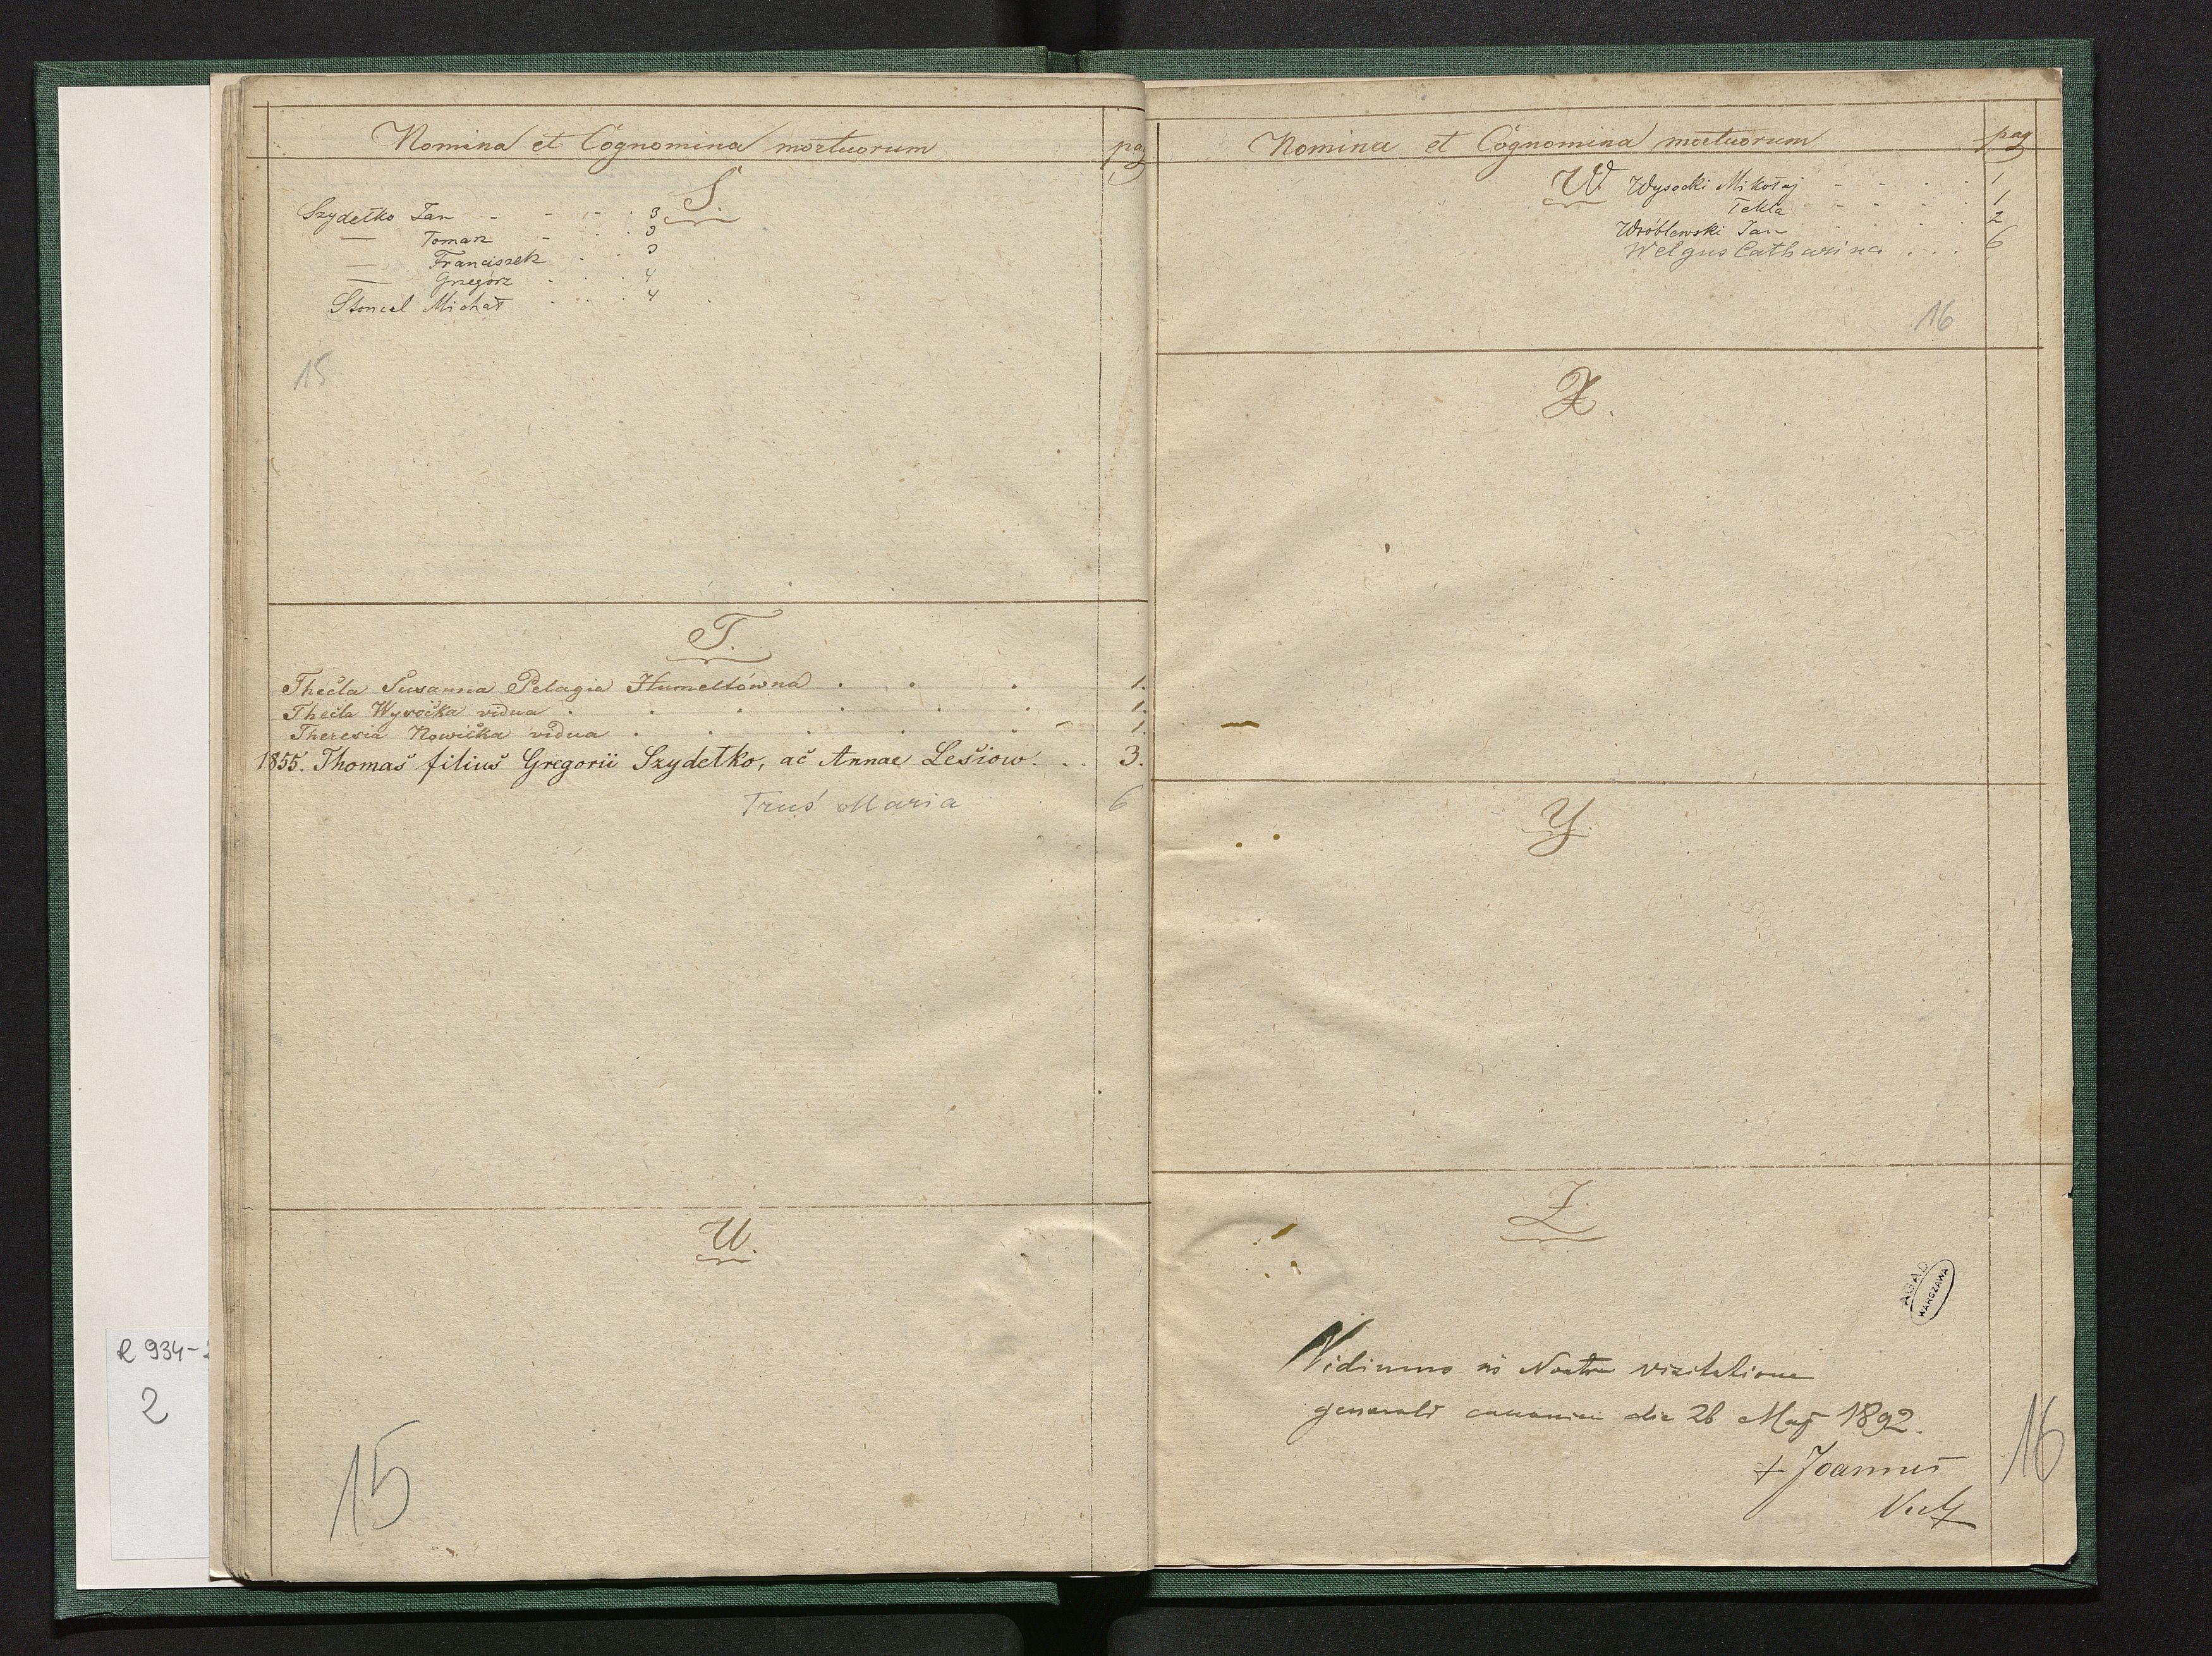 Nomina et Cognomina mortuorum pag
S.
Szydełko Jan - - - . 3
— Tomasz - . . 3
— Franciszek . . 3
— Grzegórz . . . 4
Stoncel Michał . . . 4
15
T.
Thecla Susanna Pelagia Humeltówna . . . 1.
Thecla Wysočka vidua . . . . . . 1.
Theresia Nowička vidua . . . . . 1.
1855. Thomas filius Gregorii Szydełko, ac Annae Lesiow . . . 3.
Truś Maria 6
U.
15
R 934-
2
Nomina et Cognomina mortuorum pag
W. Wysocki Mikołaj - - - . 1
Tekla - - - . 1
Wróblewski Jan . . . 2
Welgus Catharina . . . 6
16
X.
Y.
Z.
AGAD
WARSZAWA
Vidimus in Nostra visitatione
generali canonica die 26 Maji 1892.
+ Joannes
16